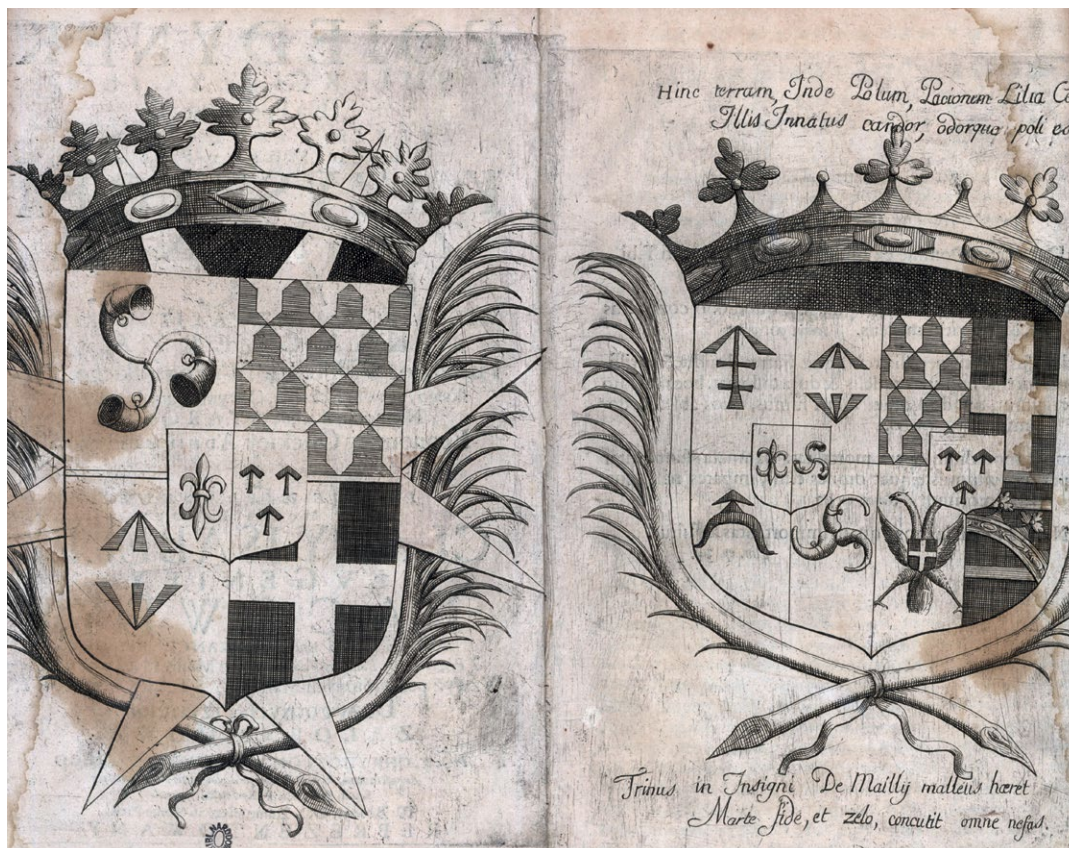 Hinc terram, Inde Polum, Pacionem Lilia
Illis Innatus candor, odorque poli
Trinus in Insigni De Mailly malleus hæret
Marte fide, et zelo, concutit omne nefas.